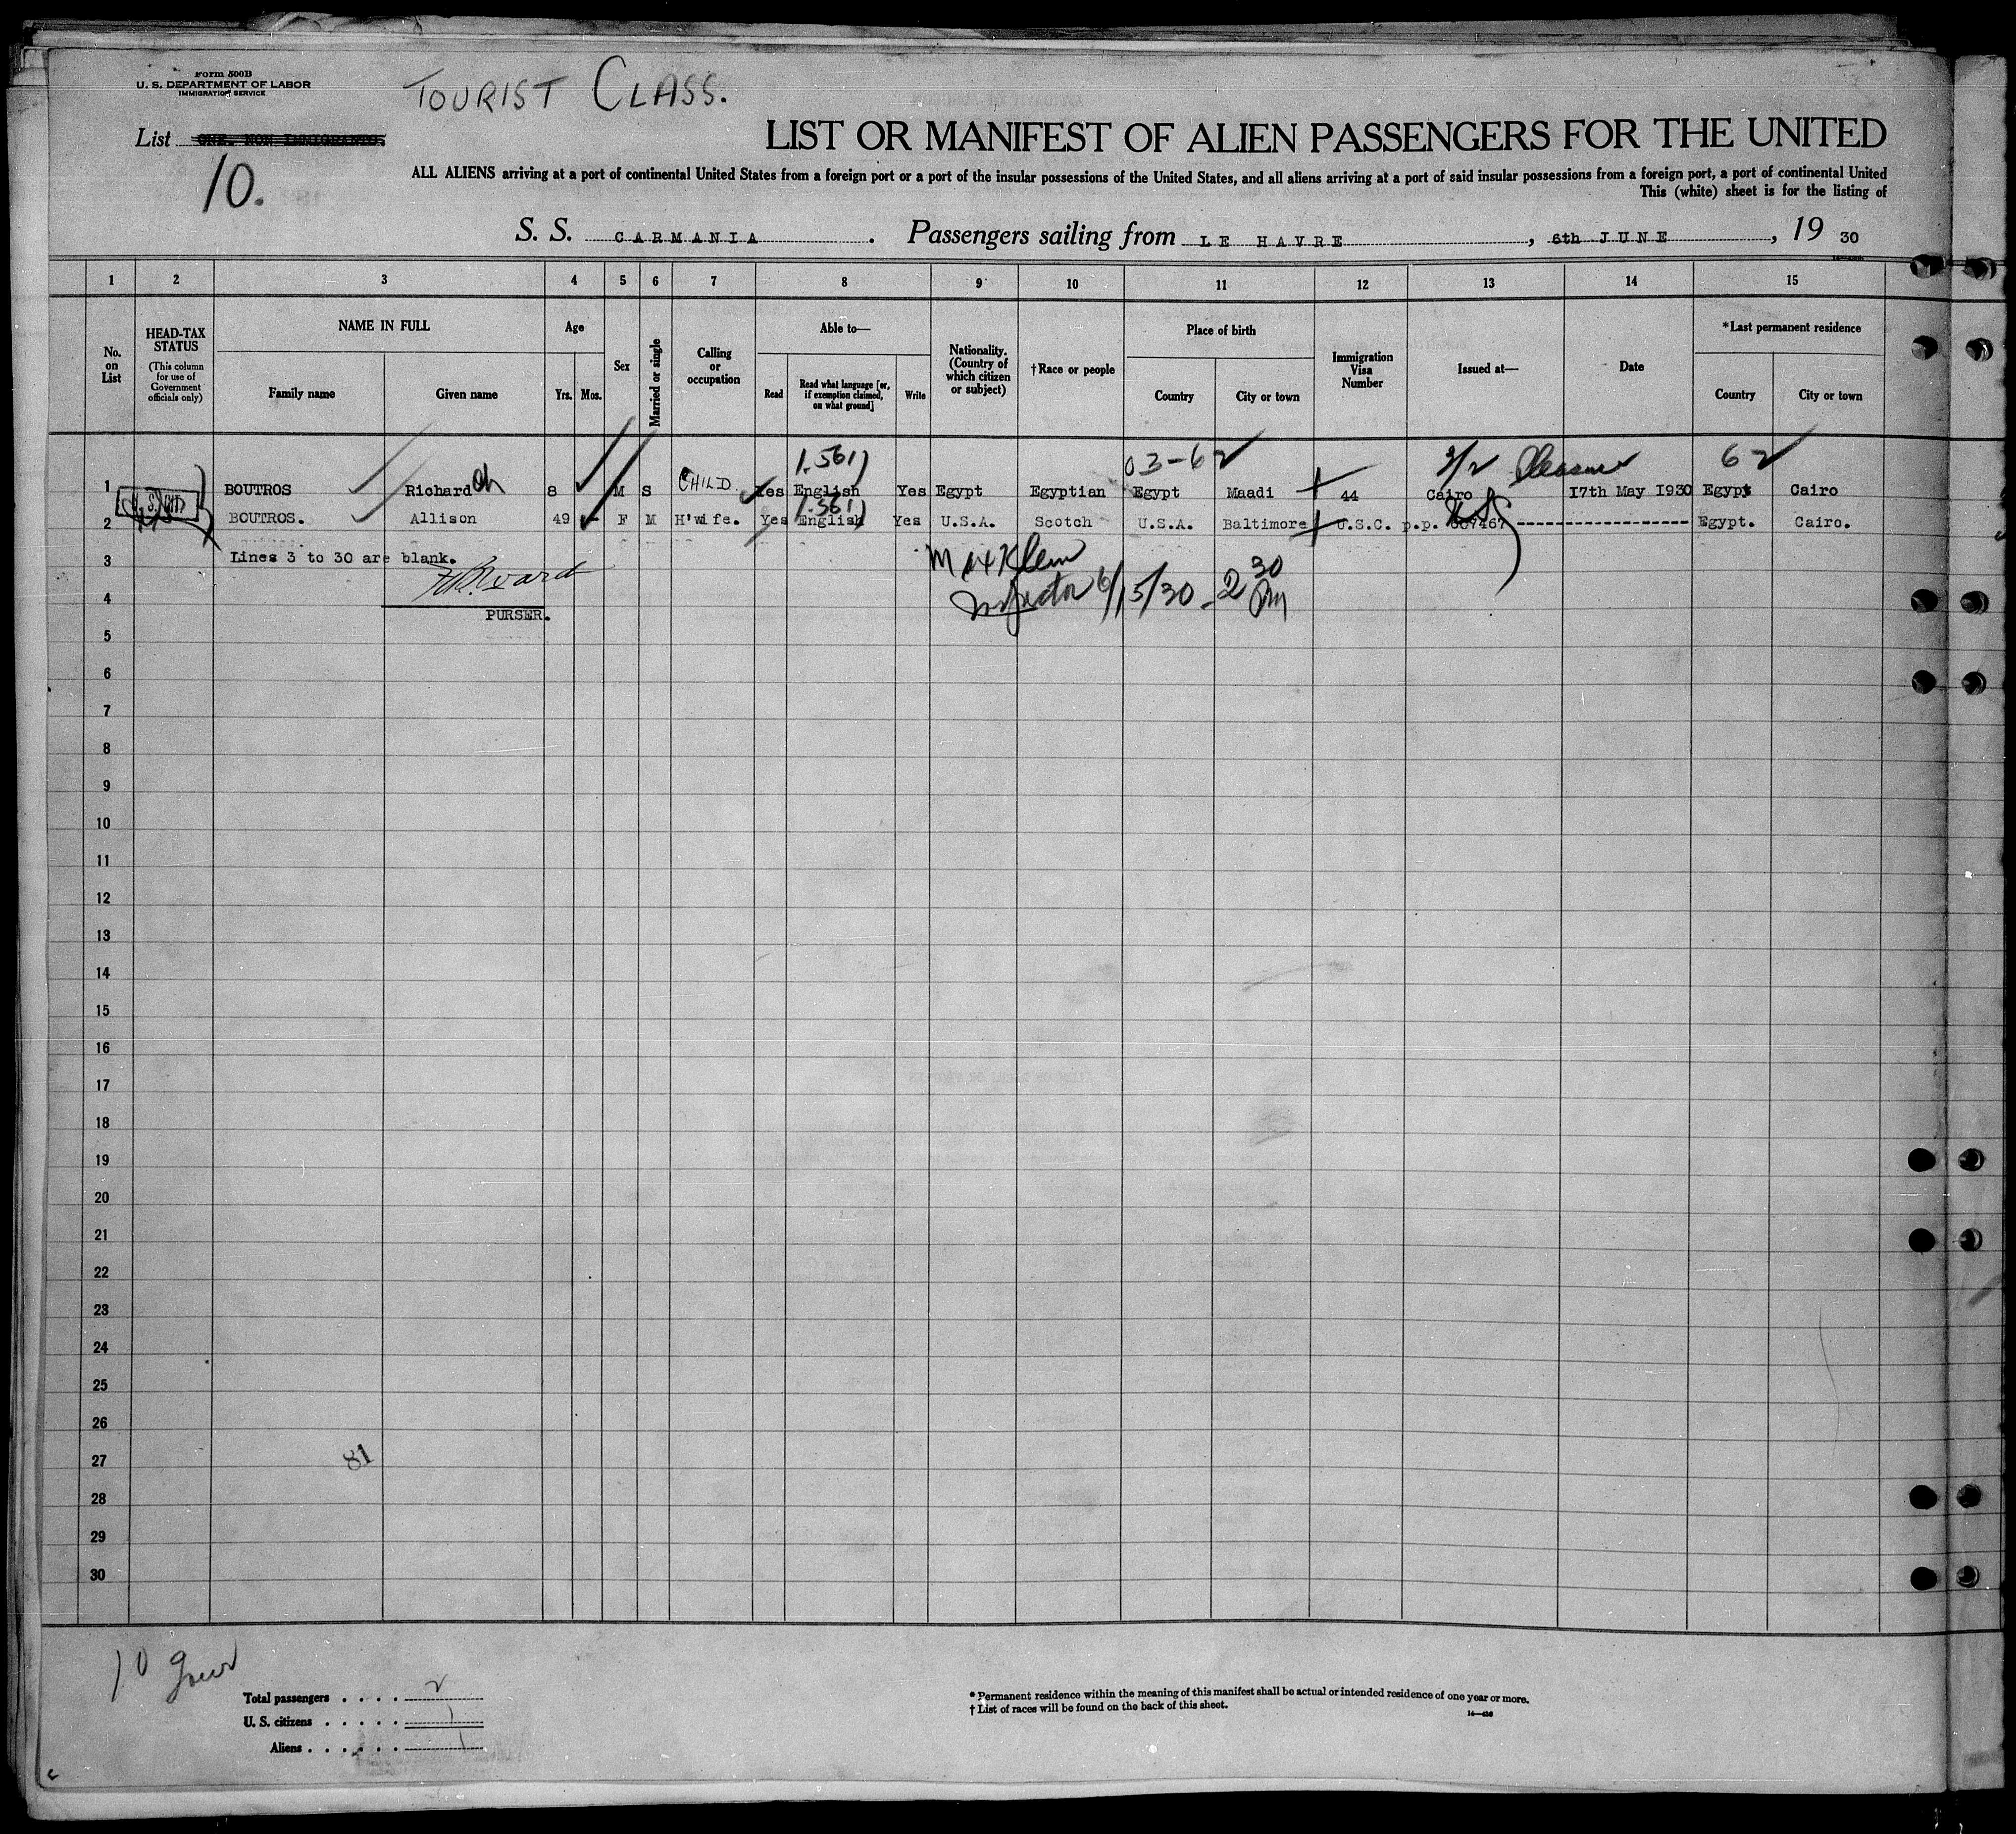 Form 500B
U. S. DEPARTMENT OF LABOR
IMMIGRATION SERVICE
TOURIST CLASS.
List ONE. NON IMMIGRANTS.
10.
LIST OR MANIFEST OF ALIEN PASSENGERS FOR THE UNITED
ALL ALIENS arriving at a port of continental United States from a foreign port or a port of the insular possessions of the United States, and all aliens arriving at a port of said insular possessions from a foreign port, a port of continental United
This (white) sheet is for the listing of
S. S. CARMANIA. Passengers sailing from LE HAVRE, 6th JUNE, 19 30
1 2 3 4 5 6 7 8 9 10 11 12 13 14 15
No. on List
HEAD-TAX STATUS (This column for use of Government officials only)
NAME IN FULL
Family name Given name
Age
Yrs. Mos.
Sex
Married or single
Calling or occupation
Able to—
Read Read what language [or, if exemption claimed, on what ground] Write
Nationality. (Country of which citizen or subject)
†Race or people
Place of birth
Country City or town
Immigration Visa Number
Issued at—
Date
*Last permanent residence
Country City or town
1.561 03-62 3/2 Pleasure 62
1 BOUTROS Richard ch 8 M S CHILD Yes English Yes Egypt Egyptian Egypt Maadi 44 Cairo 17th May 1930 Egypt Cairo
1.561
2 BOUTROS. Allison 49 - F M H'wife. Yes English Yes U.S.A. Scotch U.S.A. Baltimore U.S.C. p.p. 607467 Egypt. Cairo.
3 Lines 3 to 30 are blank.
Max Klein
Inspector 6/15/30 - 2 30 PM
4
PURSER.
5
6
7
8
9
10
11
12
13
14
15
16
17
18
19
20
21
22
23
24
25
26
27
81
28
29
30
10
Total passengers . . . . 2
U. S. citizens . . . . . 1
Aliens . . . . . . 1
* Permanent residence within the meaning of this manifest shall be actual or intended residence of one year or more.
† List of races will be found on the back of this sheet.